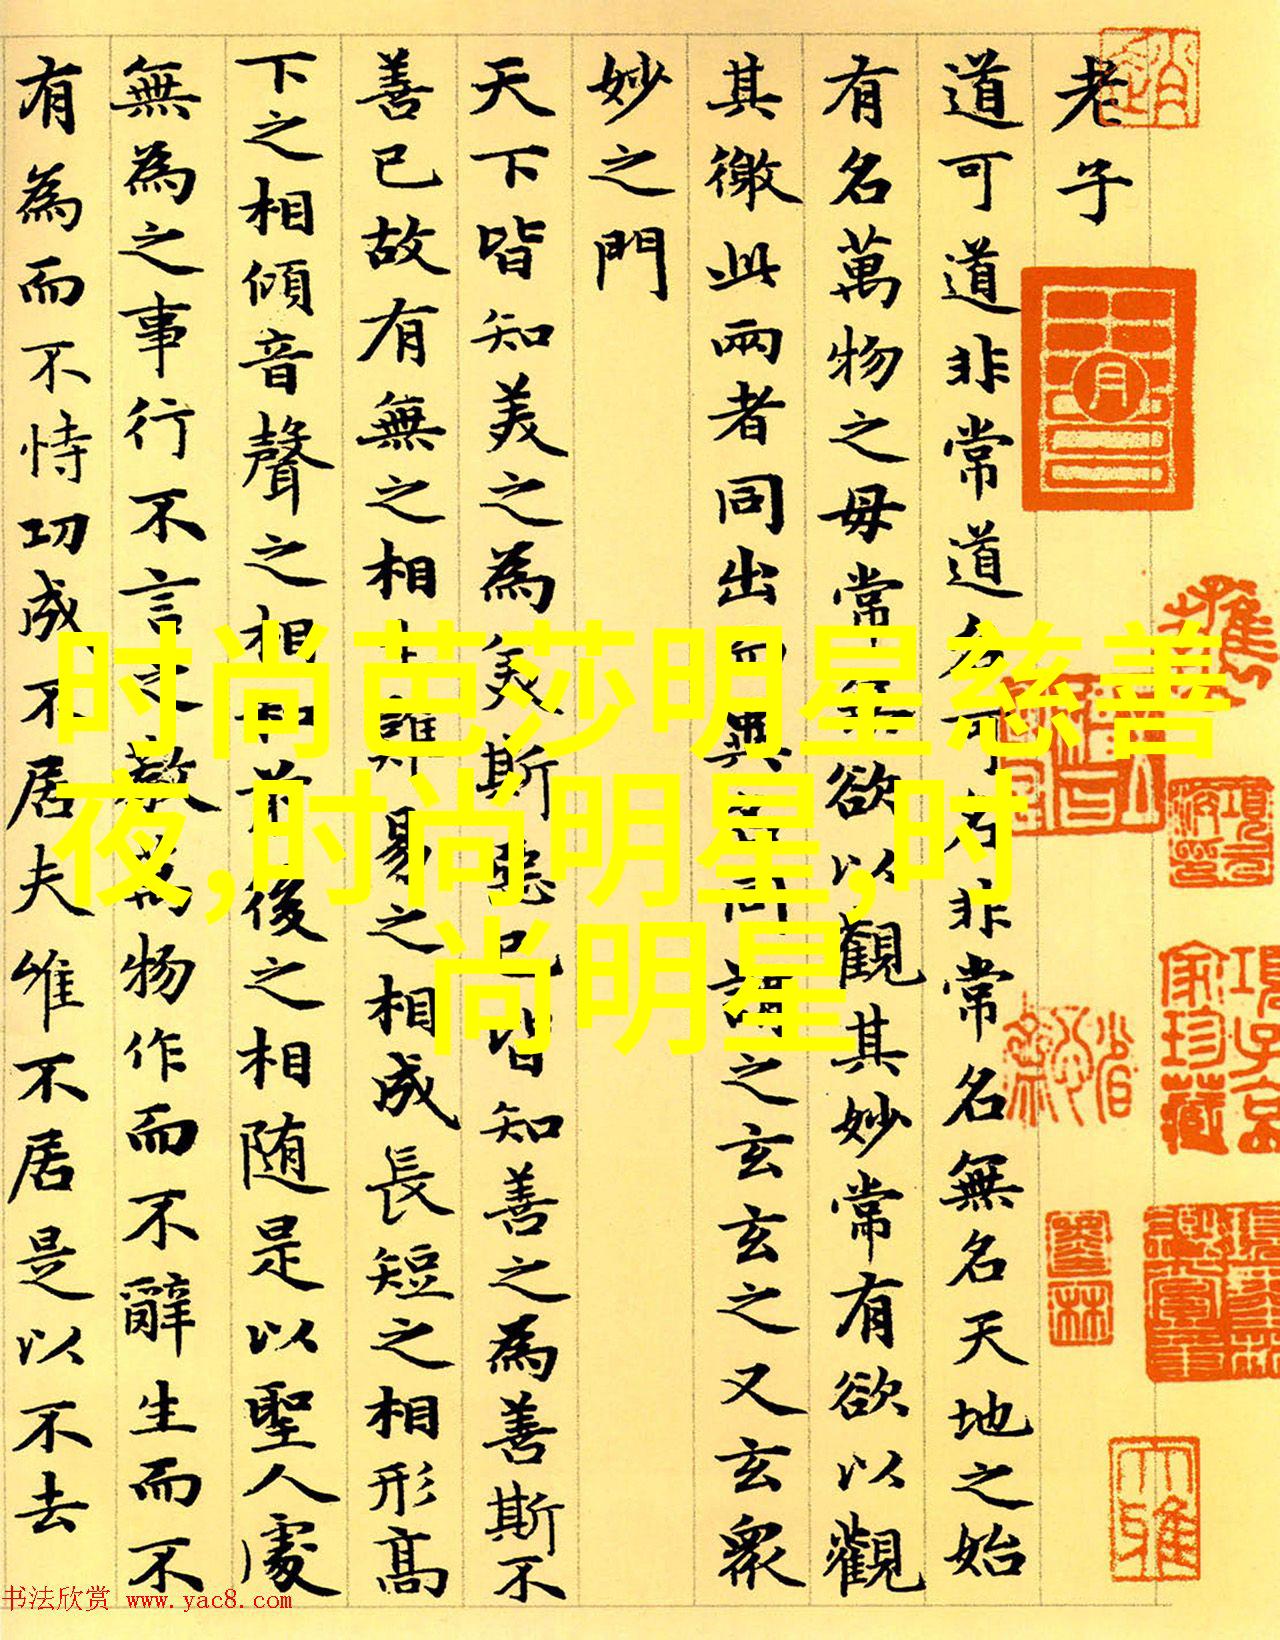 老子
道可道非常道名可名非常名無名天地之始
有名萬物之母常無欲以觀其妙常有欲以觀
其徼此兩者同出而異名同謂之玄玄之又玄衆
妙之門
天下皆知美之為美斯惡已皆知善之為善斯不
善已故有無之相生難易之相成長短之相形高
下之相傾音聲之相和前後之相随是以聖人處
無為之事行不言之教萬物作而不辭生而不
有為而不恃功成不居夫惟不居是以不去
項子京
家珍藏
时尚芭莎明星慈善
夜,时尚明星,时
尚明星
书法欣赏 www.yac8.com